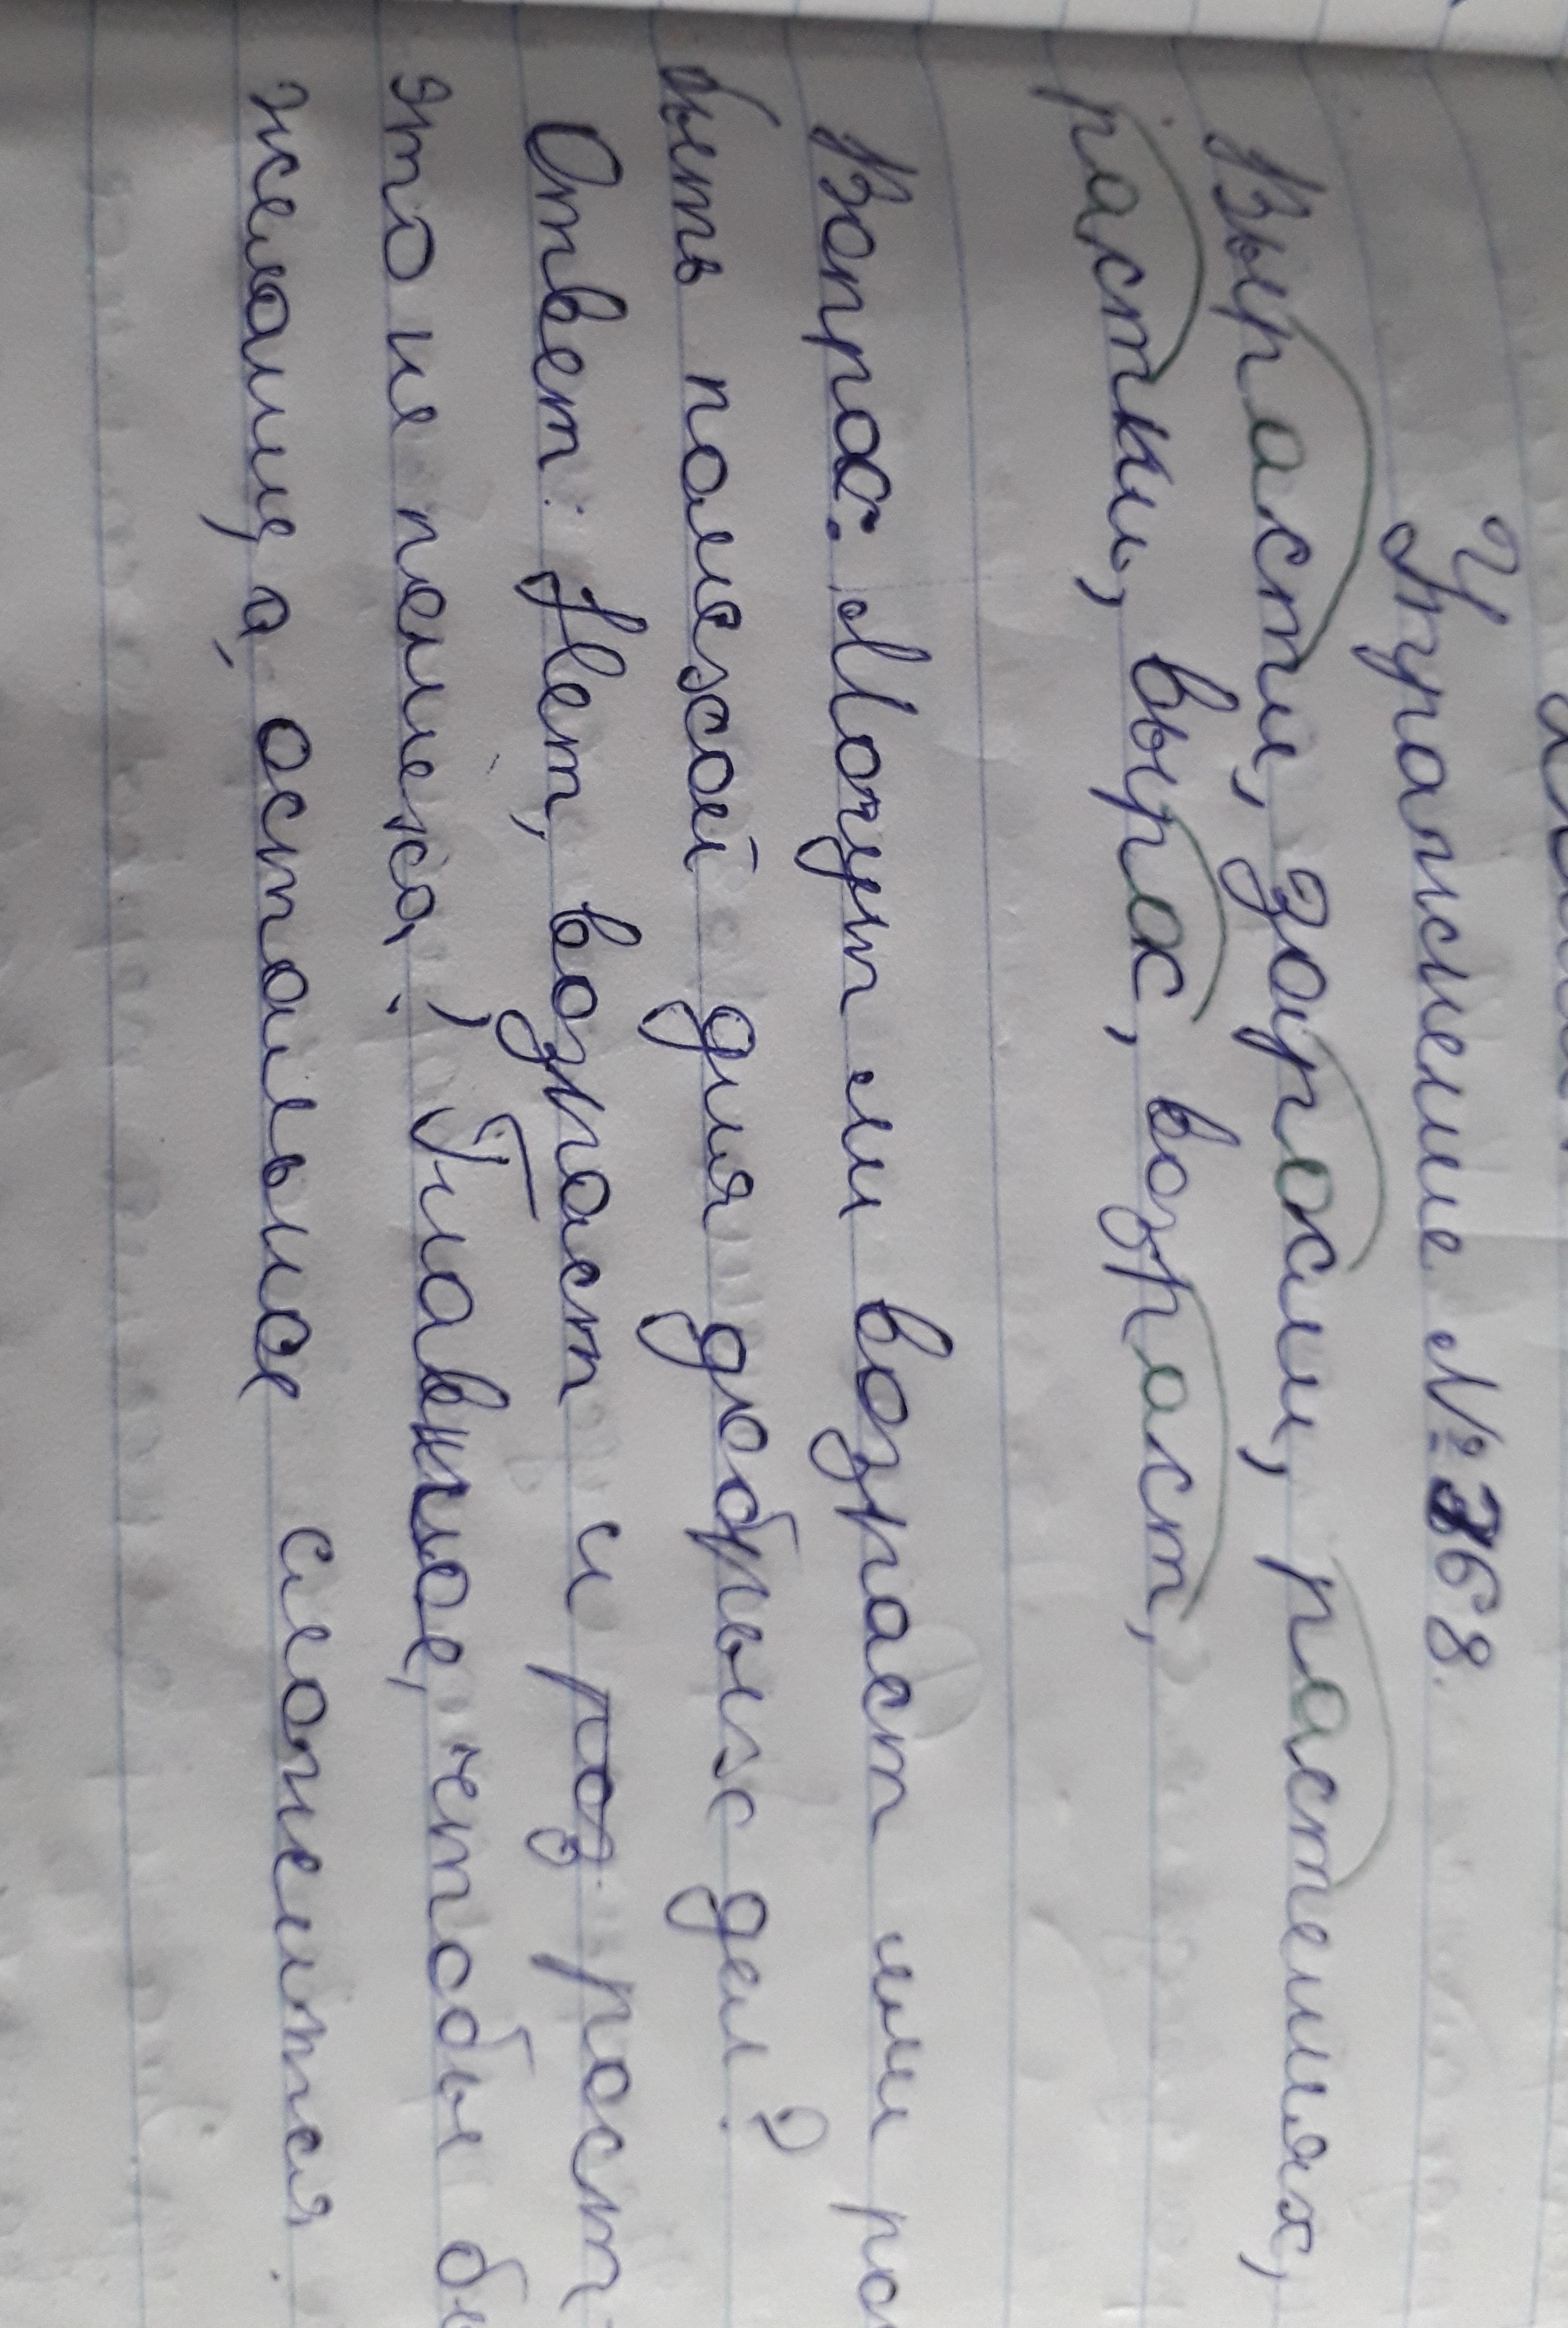 Упражнение № 768.
Вырасти, заросли, растениях,
растки, вырас, возраст,
Вопрос: Могут ли возраст или ро
быть полезой для добрых дел?
Ответ: Нет, возраст и рост
это не пелеха, Главное, чтобы бы
желания, а остальное сложится.